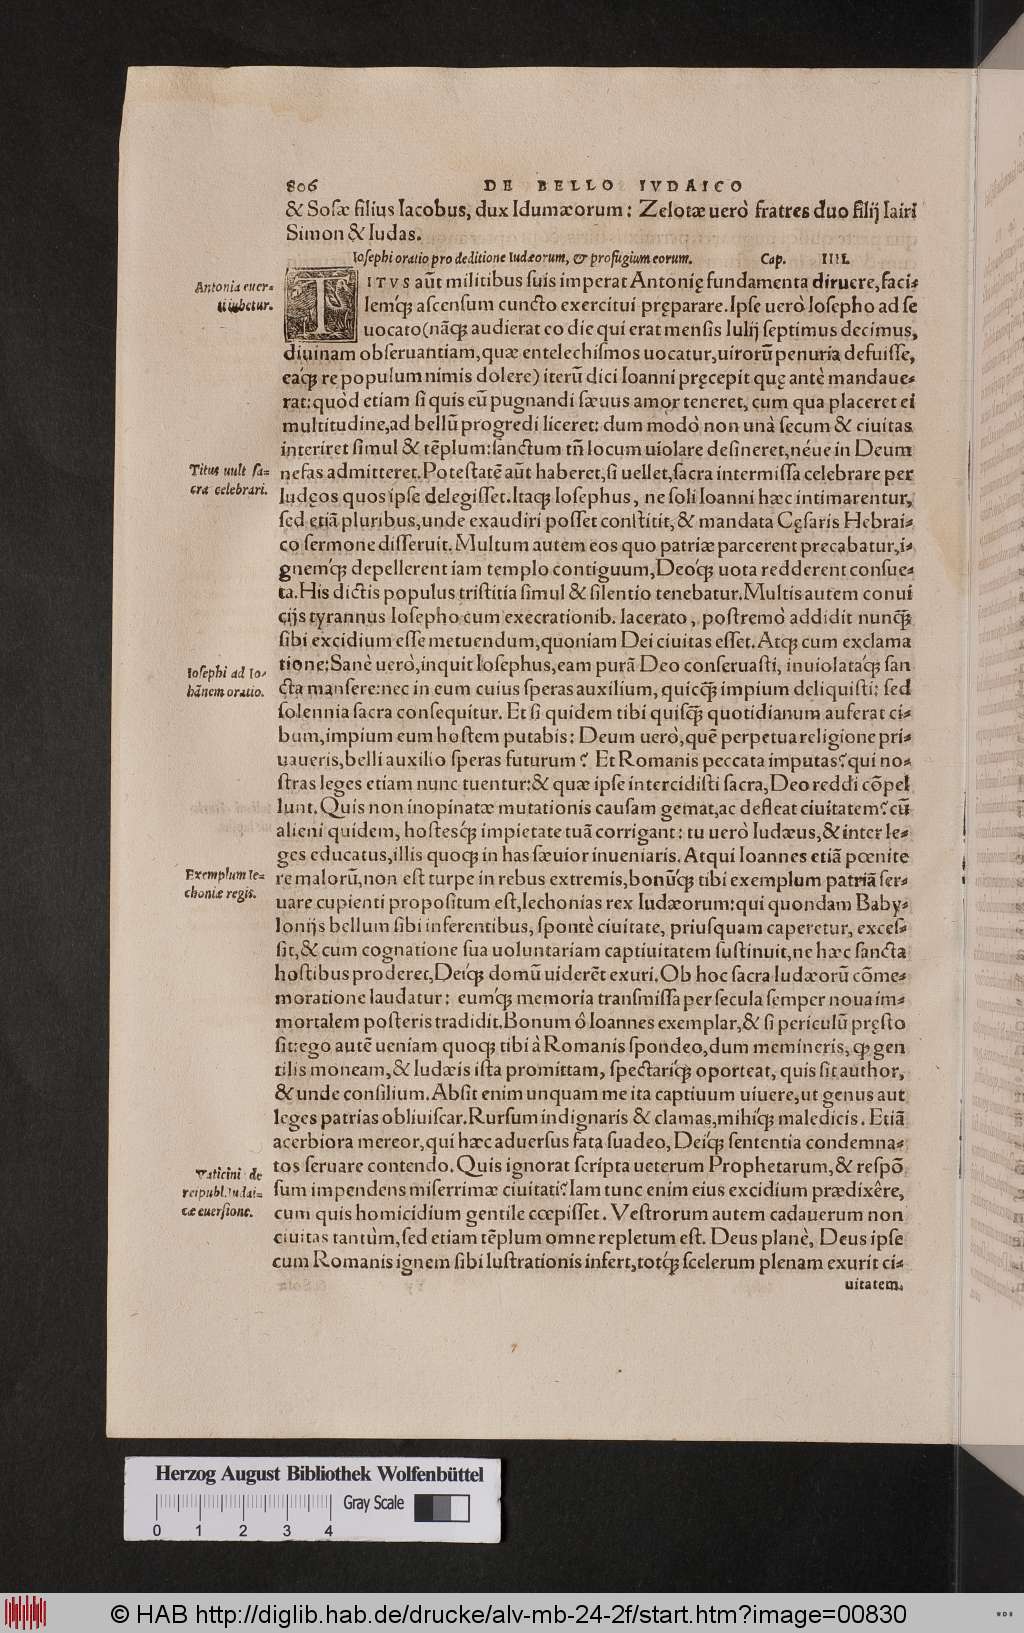 806 DE BELLO IVDAICO
& Sosæ filius Iacobus, dux Idumæorum: Zelotæ uerò fratres duo filij Iairi
Simon & Iudas.
Iosephi oratio pro deditione Iudæorum, & profugium eorum. Cap. IIII.
Antonia euer-
ti iubetur.
TITVS aūt militibus suis imperat Antonię fundamenta diruere, faci-
lemq́ꝫ ascensum cuncto exercitui pręparare. Ipse uerò Iosepho ad se
uocato (nāqꝫ audierat eo die qui erat mensis Iulij septimus decimus,
diuinam obseruantiam, quæ entelechismos uocatur, uirorū penuria defuisse,
eaq́ꝫ re populum nimis dolere) iterū dici Ioanni pręcepit quę antè mandaue-
rat: quòd etiam si quis eū pugnandi sæuus amor teneret, cum qua placeret ei
multitudine, ad bellū progredi liceret: dum modò non unà secum & ciuitas
interiret simul & tēplum: sanctum tñ locum uiolare desineret, néue in Deum
Titus uult sa-
cra celebrari.
nefas admitteret. Potestatē aūt haberet, si uellet, sacra intermissa celebrare per
Iudęos quos ipse delegisset. Itaqꝫ Iosephus, ne soli Ioanni hæc intimarentur,
sed etiā pluribus, unde exaudiri posset constitit, & mandata Cęsaris Hebrai-
co sermone disseruit. Multum autem eos quo patriæ parcerent precabatur, i-
gnemq́ꝫ depellerent iam templo contiguum, Deoq́ꝫ uota redderent consue-
ta. His dictis populus tristitia simul & silentio tenebatur. Multis autem conui
cijs tyrannus Iosepho cum execrationib. lacerato, postremò addidit nunq̄ꝫ
sibi excidium esse metuendum, quoniam Dei ciuitas esset. Atqꝫ cum exclama
Iosephi ad Io-
hānem oratio.
tione: Sanè uerò, inquit Iosephus, eam purā Deo conseruasti, inuiolataq́ꝫ san
cta mansere: nec in eum cuius speras auxilium, quicq̄ꝫ impium deliquisti: sed
solennia sacra consequitur. Et si quidem tibi quisq̄ꝫ quotidianum auferat ci-
bum, impium eum hostem putabis: Deum uerò, quē perpetua religione pri-
uaueris, belli auxilio speras futurum? Et Romanis peccata imputas? qui no-
stras leges etiam nunc tuentur: & quæ ipse intercidisti sacra, Deo reddi cōpel
lunt. Quis non inopinatæ mutationis causam gemat, ac defleat ciuitatem? cū
alieni quidem, hostesq́ꝫ impietate tuā corrigant: tu uerò Iudæus, & inter le-
ges educatus, illis quoqꝫ in has sæuior inueniaris. Atqui Ioannes etiā pœnite
Exemplum Ie-
choniæ regis.
re malorū, non est turpe in rebus extremis, bonūq́ꝫ tibi exemplum patriā ser-
uare cupienti propositum est, Iechonias rex Iudæorum: qui quondam Baby-
lonijs bellum sibi inferentibus, spontè ciuitate, priusquam caperetur, exces-
sit, & cum cognatione sua uoluntariam captiuitatem sustinuit, ne hæc sancta
hostibus proderet, Deiq́ꝫ domū uiderēt exuri. Ob hoc sacra Iudæorū cōme-
moratione laudatur: eumq́ꝫ memoria transmissa per secula semper noua im-
mortalem posteris tradidit. Bonum ô Ioannes exemplar, & si periculū pręsto
sit: ego autē ueniam quoqꝫ tibi à Romanis spondeo, dum memineris, ꝙ gen
tilis moneam, & Iudæis ista promittam, spectariq́ꝫ oporteat, quis sit author,
& unde consilium. Absit enim unquam me ita captiuum uiuere, ut genus aut
leges patrias obliuiscar. Rursum indignaris & clamas, mihiq́ꝫ maledicis. Etiā
acerbiora mereor, qui hæc aduersus fata suadeo, Deiq́ꝫ sententia condemna-
tos seruare contendo. Quis ignorat scripta ueterum Prophetarum, & respō
Vaticini de
reipubl. Iudai-
cæ euersione.
sum impendens miserrimæ ciuitati? Iam tunc enim eius excidium prædixêre,
cum quis homicidium gentile cœpisset. Vestrorum autem cadauerum non
ciuitas tantùm, sed etiam tēplum omne repletum est. Deus planè, Deus ipse
cum Romanis ignem sibi lustrationis infert, totq́ꝫ scelerum plenam exurit ci-
uitatem.
Herzog August Bibliothek Wolfenbüttel
Gray Scale
0 1 2 3 4
© HAB http://diglib.hab.de/drucke/alv-mb-24-2f/start.htm?image=00830